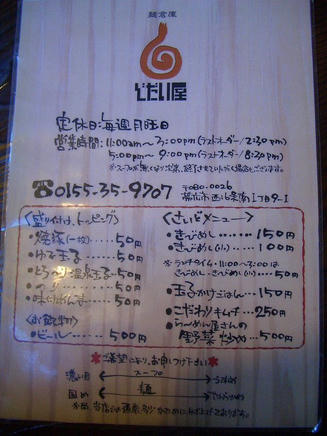 麺倉庫
じだい屋
定休日:毎週月曜日
営業時間:11:00am~3:00pm(ラストオーダー/2:30pm)
5:00pm~9:00pm(ラストオーダー/8:30pm)
※スープが無くなり次第、終了させていただく場合もございます。
☎0155-35-9707
〒080-0026
帯広市西16条南1丁目9-1
<盛り付け、トッピング>
・焼豚(一枚)……50円
・ゆで玉子……50円
・とろ~り温泉玉子…50円
・のり……50円
・味付めんま……50円
<お飲物>
・ビール……500円
<さいどメニュー>
・きざみめし……150円
・きざみめし(小)……100円
※ランチタイム・11:00~3:00は
きざみめし・きざみめし(小)……50円
・玉子かけごはん…150円
・こだわりキムチ…250円
・らーめん屋さんの
野菜炒め…500円
※ご要望により、お申しつけ下さい※
濃い目 スープ うすめ
固め 麺 やわらかめ